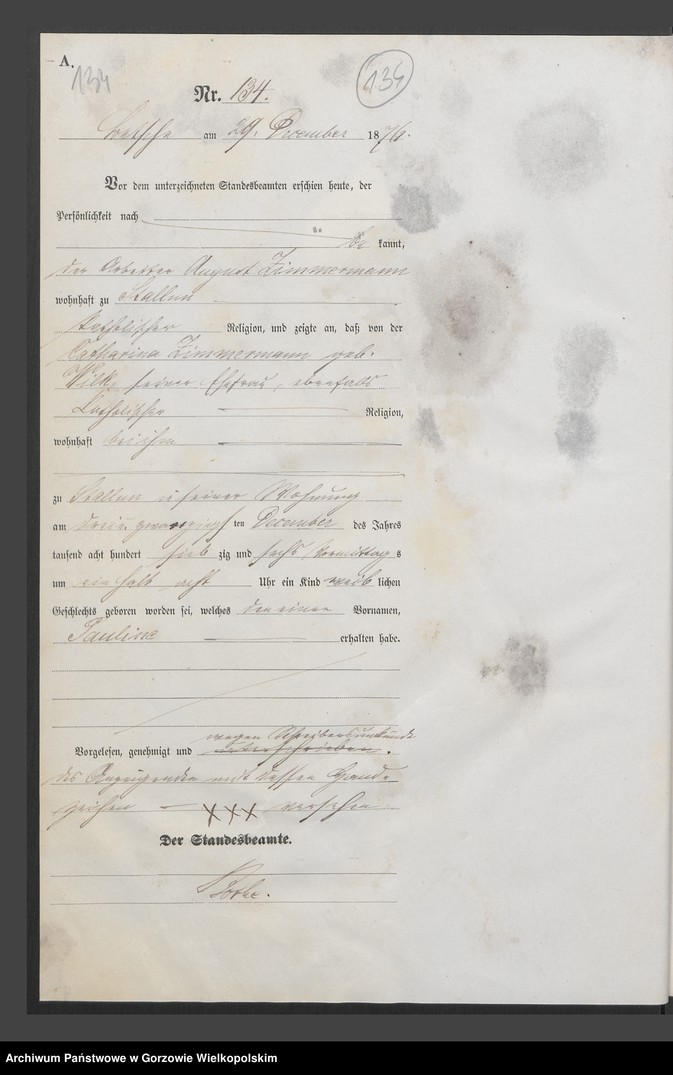 A.
134
134
Nr. 134.
Betsche am 29. December 1876.
Vor dem unterzeichneten Standesbeamten erschien heute, der
Persönlichkeit nach
be kannt,
der Arbeiter August Zimmermann
wohnhaft zu Stallun
katholischer Religion, und zeigte an, daß von der
Catharina Zimmermann geb.
Wilk, seiner Ehefrau, ebenfalls
katholischer Religion,
wohnhaft bei ihm
zu Stallun in seiner Wohnung
am drei u. zwanzigsten December des Jahres
tausend acht hundert sieb zig und sechs Vormittags
um ein halb acht Uhr ein Kind weiblichen
Geschlechts geboren worden sei, welches den einen Vornamen,
Pauline erhalten habe.
Vorgelesen, genehmigt und wegen Schreibensunkunde
unterschrieben.
des Anzeigenden mit dessen Hand-
zeichen XXX versehen
Der Standesbeamte.
Archiwum Państwowe w Gorzowie Wielkopolskim